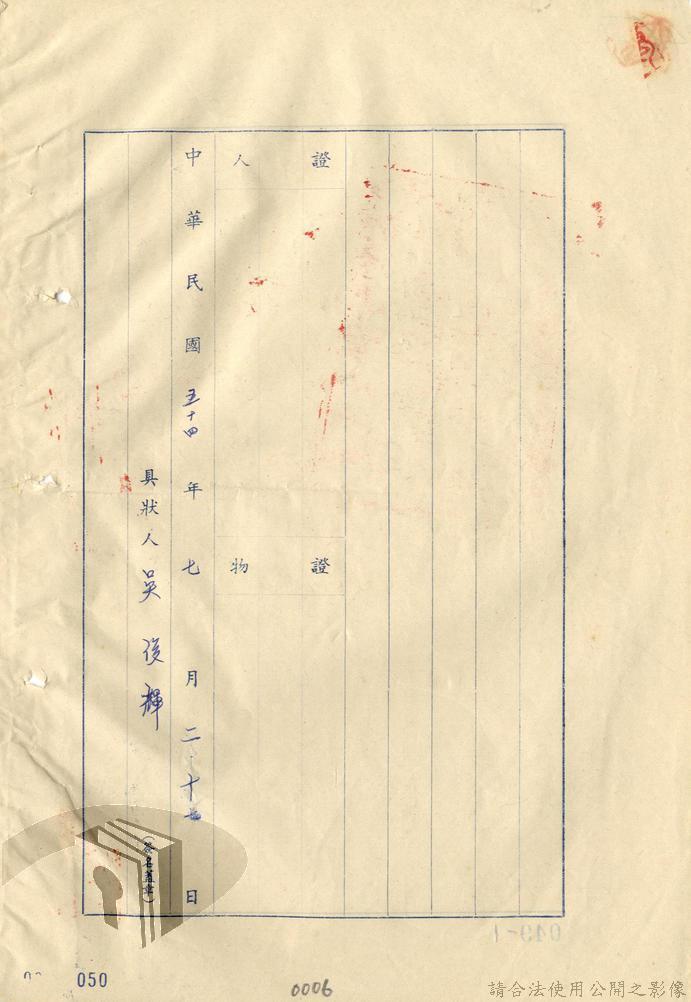 證人
證物
中華民國五十四年七月二十五日
具狀人 吳俊輝
(簽名蓋章)
050
0006
049-1
請合法使用公開之影像